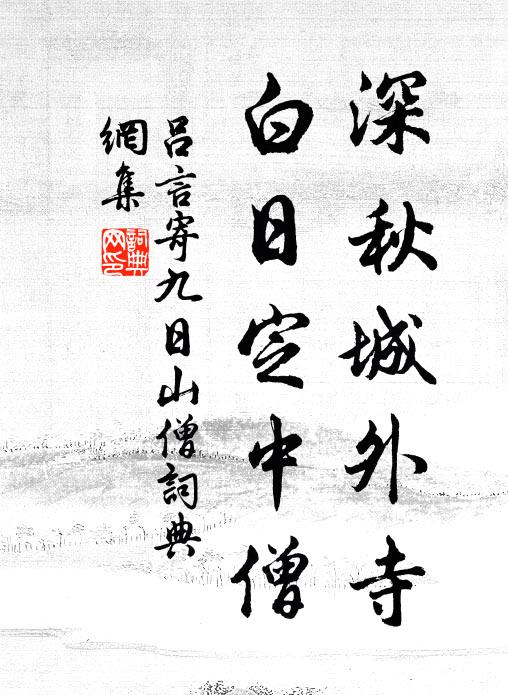 深秋城外寺
白日定中僧
呂言寄九日山僧詞典
網集
詞典
网印